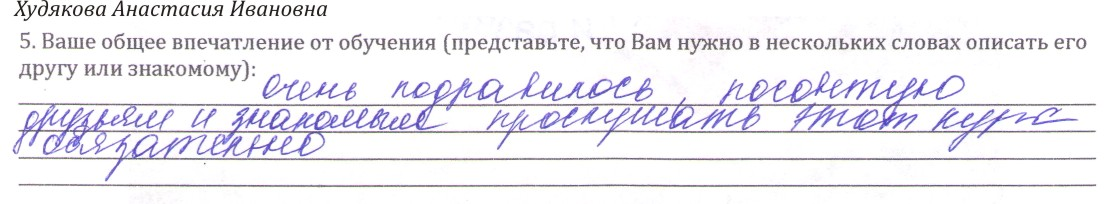 Худякова Анастасия Ивановна
5. Ваше общее впечатление от обучения (представьте, что Вам нужно в нескольких словах описать его
другу или знакомому):
очень подравилось посоветую
друзьям и знакомым прослушать этот курс
обязательно